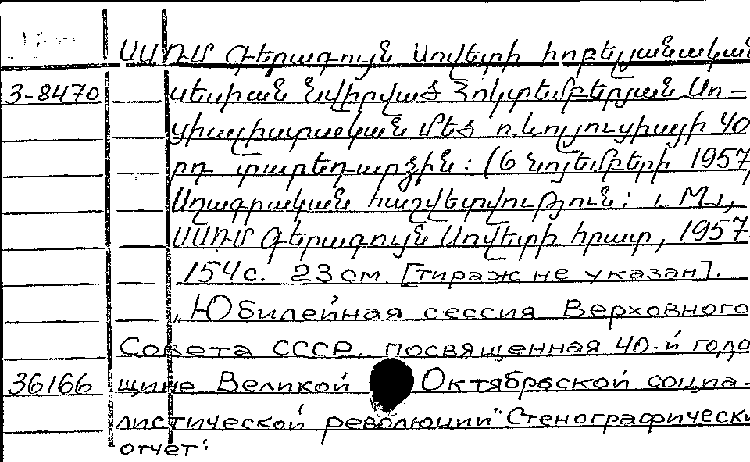 ՍՍՌՄ Գերագույն Սովետի հոբելյանական
3-8470 սեսիան նվիրված Հոկտեմբերյան Սո-
ցիալիստական մեծ ռևոլյուցիայի 40
րդ տարեդարձին: (6 նոյեմբերի 1957
Սղագրական հաշվետվություն: Մ.,
ՍՍՌՄ Գերագույն Սովետի հրատ, 1957
154 с. 23 см. [тираж не указан].
„Юбилейная сессия Верховного
Совета СССР, посвященная 40-й годо
36166 щине Великой Октябрьской социа-
листической революции" Стенографически
отчет: